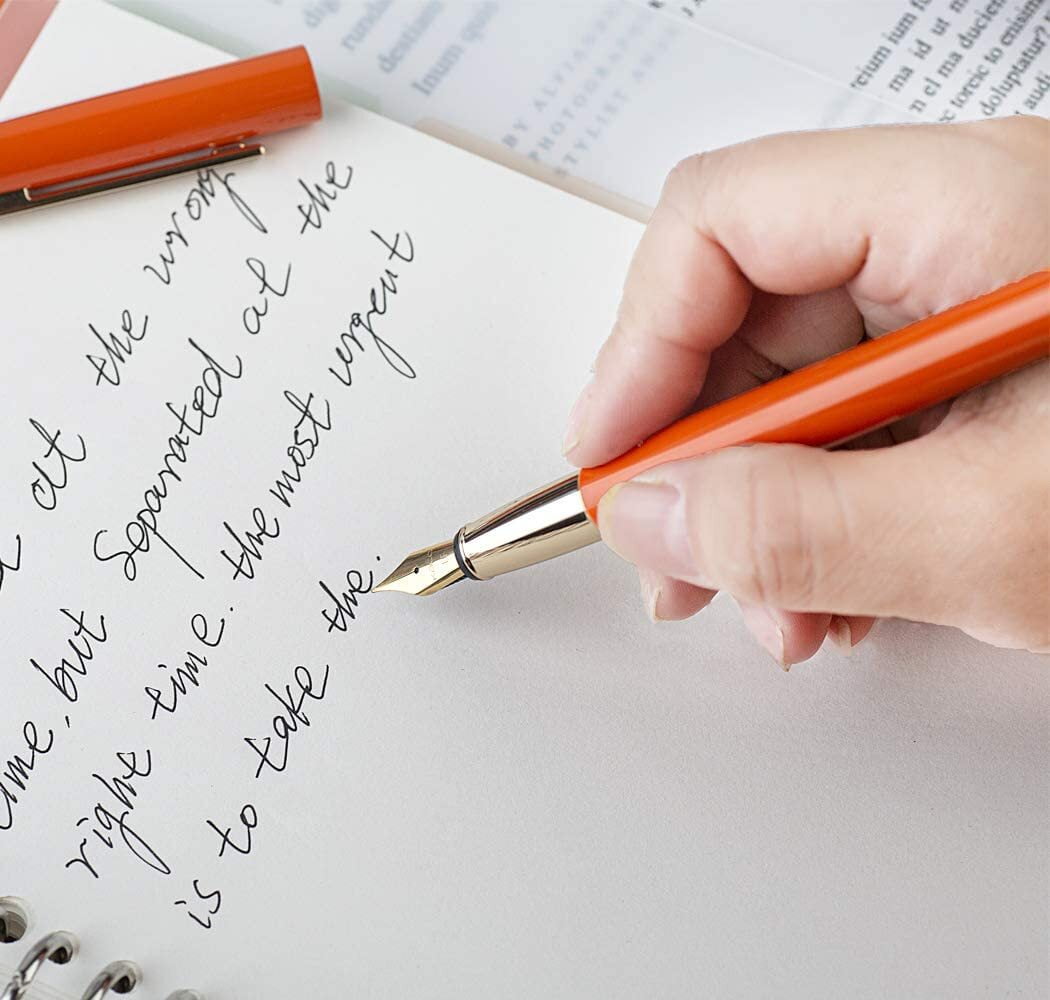 at the wrong
time, but Separated at the
right time. the most urgent
is to take the.
digni
runda
destium
Inum quis
BY ALFIAN
PHOTOGRAPH
STYLIST AND
teium ium f
ma id ut m
n el ma ducien
c toreic to enisim
doluptatur?
audi